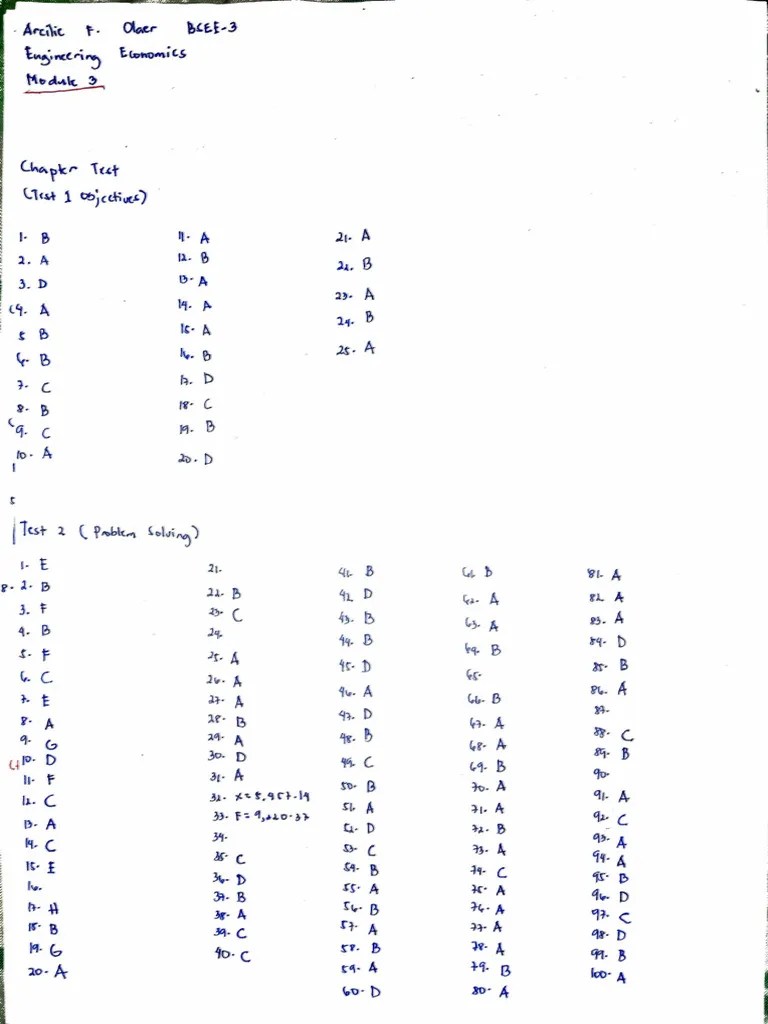 Arcilie F. Olaer BSEE-3
Engineering Economics
Module 3
Chapter Test
(Test 1 Objectives)
1. B
2. A
3. D
4. A
5 B
6. B
7. C
8. B
9. C
10. A
11. A
12. B
13. A
14. A
15. A
16. B
17. D
18. C
19. B
20. D
21. A
22. B
23. A
24. B
25. A
Test 2 (Problem Solving)
1. E
8. 2. B
3. F
4. B
5. F
6. C
7. E
8. A
9. G
10. D
11. F
12. C
13. A
14. C
15. E
16.
17. H
18. B
19. G
20. A
21.
22. B
23. C
24.
25. A
26. A
27. A
28. B
29. A
30. D
31. A
32. x = 5,957.19
33. F = 9,220.37
34.
35. C
36. D
37. B
38. A
39. C
40. C
41. B
42. D
43. B
44. B
45. D
46. A
47. D
48. B
49. C
50. B
51. A
52. D
53. C
54. B
55. A
56. B
57. A
58. B
59. A
60. D
61. B
62. A
63. A
64. B
65.
66. B
67. A
68. A
69. B
70. A
71. A
72. B
73. A
74. C
75. A
76. A
77. A
78. A
79. B
80. A
81. A
82. A
83. A
84. D
85. B
86. A
87.
88. C
89. B
90.
91. A
92. C
93. A
94. A
95. B
96. D
97. C
98. D
99. B
100. A